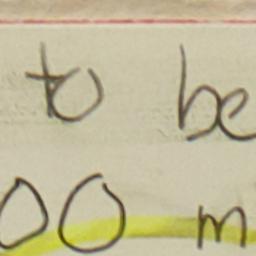 to be
00 m